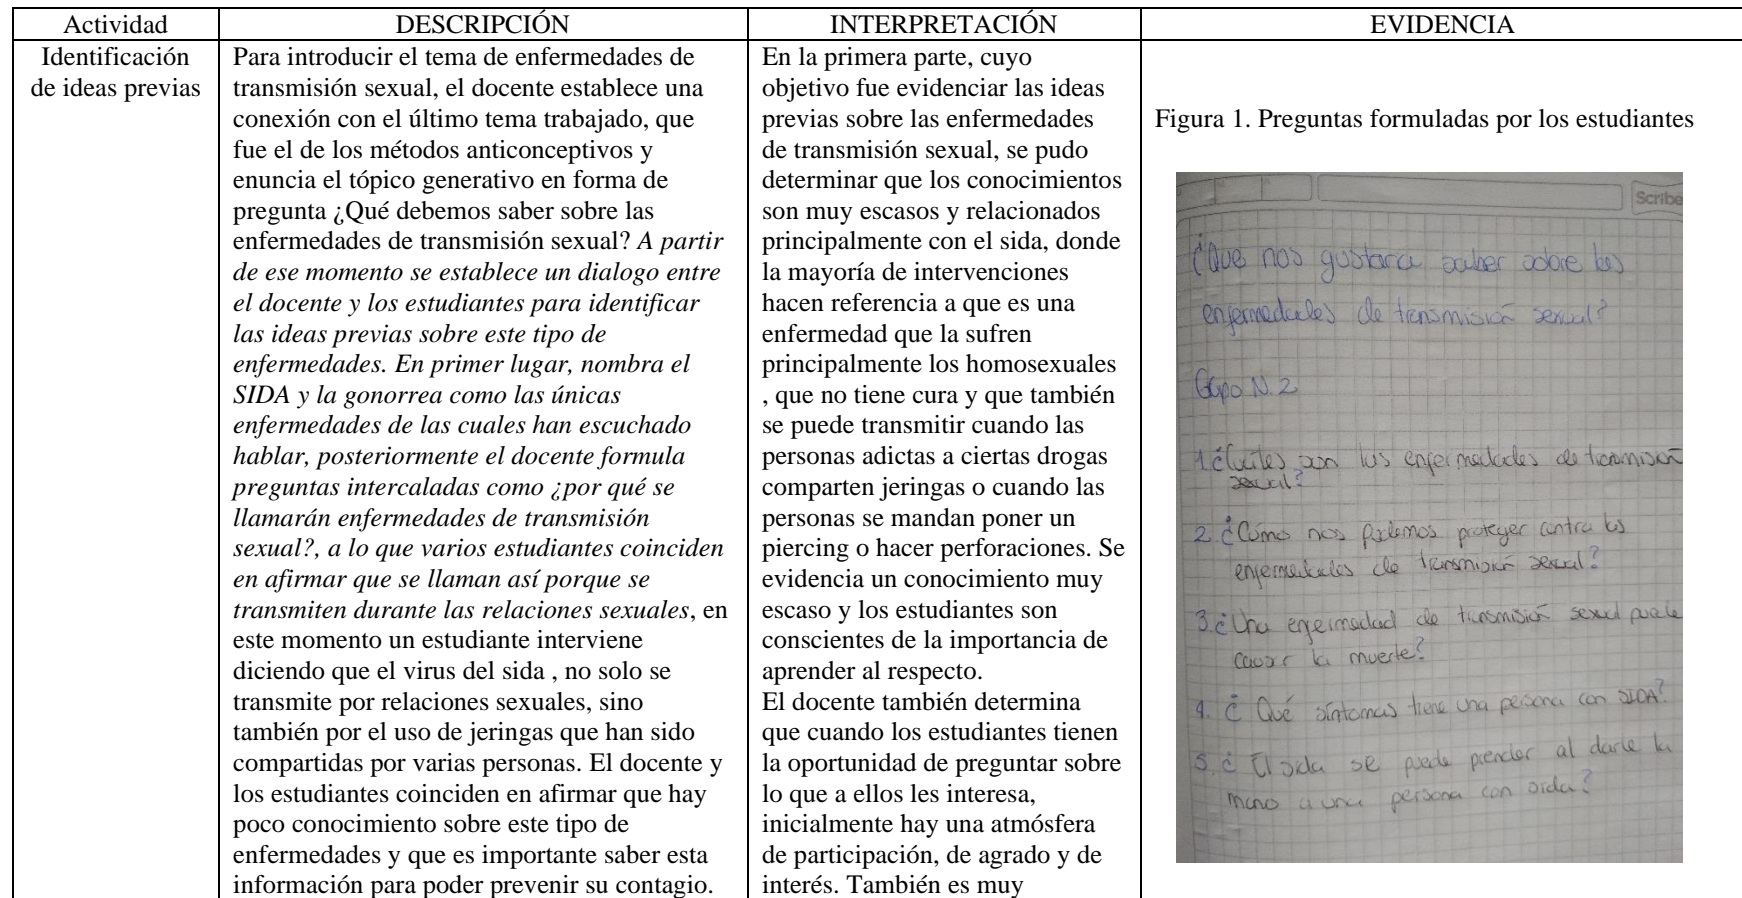 Actividad
DESCRIPCIÓN
INTERPRETACIÓN
EVIDENCIA
Identificación
de ideas previas
Para introducir el tema de enfermedades de
transmisión sexual, el docente establece una
conexión con el último tema trabajado, que
fue el de los métodos anticonceptivos y
enuncia el tópico generativo en forma de
pregunta ¿Qué debemos saber sobre las
enfermedades de transmisión sexual? A partir
de ese momento se establece un dialogo entre
el docente y los estudiantes para identificar
las ideas previas sobre este tipo de
enfermedades. En primer lugar, nombra el
SIDA y la gonorrea como las únicas
enfermedades de las cuales han escuchado
hablar, posteriormente el docente formula
preguntas intercaladas como ¿por qué se
llamarán enfermedades de transmisión
sexual?, a lo que varios estudiantes coinciden
en afirmar que se llaman así porque se
transmiten durante las relaciones sexuales, en
este momento un estudiante interviene
diciendo que el virus del sida , no solo se
transmite por relaciones sexuales, sino
también por el uso de jeringas que han sido
compartidas por varias personas. El docente y
los estudiantes coinciden en afirmar que hay
poco conocimiento sobre este tipo de
enfermedades y que es importante saber esta
información para poder prevenir su contagio.
En la primera parte, cuyo
objetivo fue evidenciar las ideas
previas sobre las enfermedades
de transmisión sexual, se pudo
determinar que los conocimientos
son muy escasos y relacionados
principalmente con el sida, donde
la mayoría de intervenciones
hacen referencia a que es una
enfermedad que la sufren
principalmente los homosexuales
, que no tiene cura y que también
se puede transmitir cuando las
personas adictas a ciertas drogas
comparten jeringas o cuando las
personas se mandan poner un
piercing o hacer perforaciones. Se
evidencia un conocimiento muy
escaso y los estudiantes son
conscientes de la importancia de
aprender al respecto.
El docente también determina
que cuando los estudiantes tienen
la oportunidad de preguntar sobre
lo que a ellos les interesa,
inicialmente hay una atmósfera
de participación, de agrado y de
interés. También es muy
Figura 1. Preguntas formuladas por los estudiantes
Scribe
¿Que nos gustaria saber sobre las
enfermedades de transmisión sexual?
Grupo N. 2
1. ¿Cuáles son las enfermedades de transmisión
sexual?
2. ¿Cómo nos podemos proteger contra las
enfermedades de transmisión sexual?
3. ¿Una enfermedad de transmisión sexual puede
causar la muerte?
4. ¿Qué síntomas tiene una persona con SIDA?
5. ¿El sida se puede prender al darle la
mano a una persona con sida?